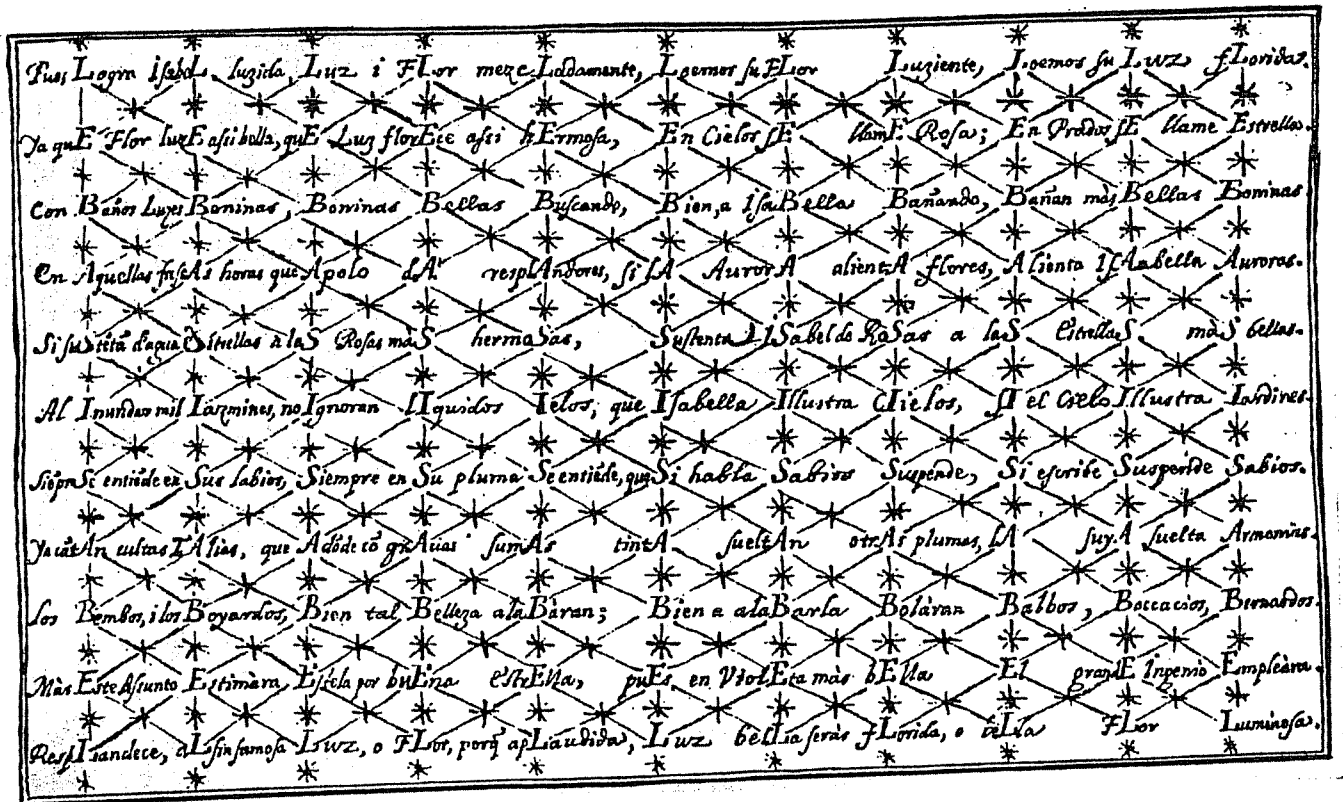 Pues Logra IsabeL luzida, Luz i FLor mezcLadamente, Loemos su FLor Luziente, Loemos su Luz fLorida.
Ya quE Flor luzE assi bella, quE Luz florEce assi hErmosa, En Cielos sE llamE Rosa; En Prados sE llame Estrella.
Con Baños Luzes Boninas, Boninas Bellas Buscando, Bien, a IsaBella Bañando, Bañan màs Bellas Boninas.
En Aquellas horas que Apolo dA resplAndores, si lA AurorA alientA flores, Alienta IsAabella Auroras.
Si suStētā d'agua EStrellas a laS Rosas màS hermoSas, Sustenta ISabel de RoSas a laS EstrellaS màS bellas.
Al Inundar mil Iazmines, no Ignoran lIquidos Ielos, que Isabella Illustra CIielos, sI el Cielo Illustra Iardines.
Siēpre Se entiēde en Sus labios, Siempre en Su pluma Se entiēde, que Si habla Sabios Suspende, Si escribe Suspende Sabios.
Ya cātAn cultas TAlias, que Adōde cō grAcias sumAs tintA sueltAn otrAs plumas, lA suyA suelta Armonias.
Los Bembos, i los Boyardos, Bien tal Belleza alaBàran; Bien a alaBarla Bolàran Balbos, Boccacios, Bernardos.
Màs Este Assunto Estimàra Estela por buEna estrElla, puEs, en ViolEta màs bElla El grandE Ingenio Emplèara.
RespLandece, aLsin famosa Luz, o FLor, porq̃ apLaudida, Luz belLa seràs fLorida, o beLla FLor Luminosa.